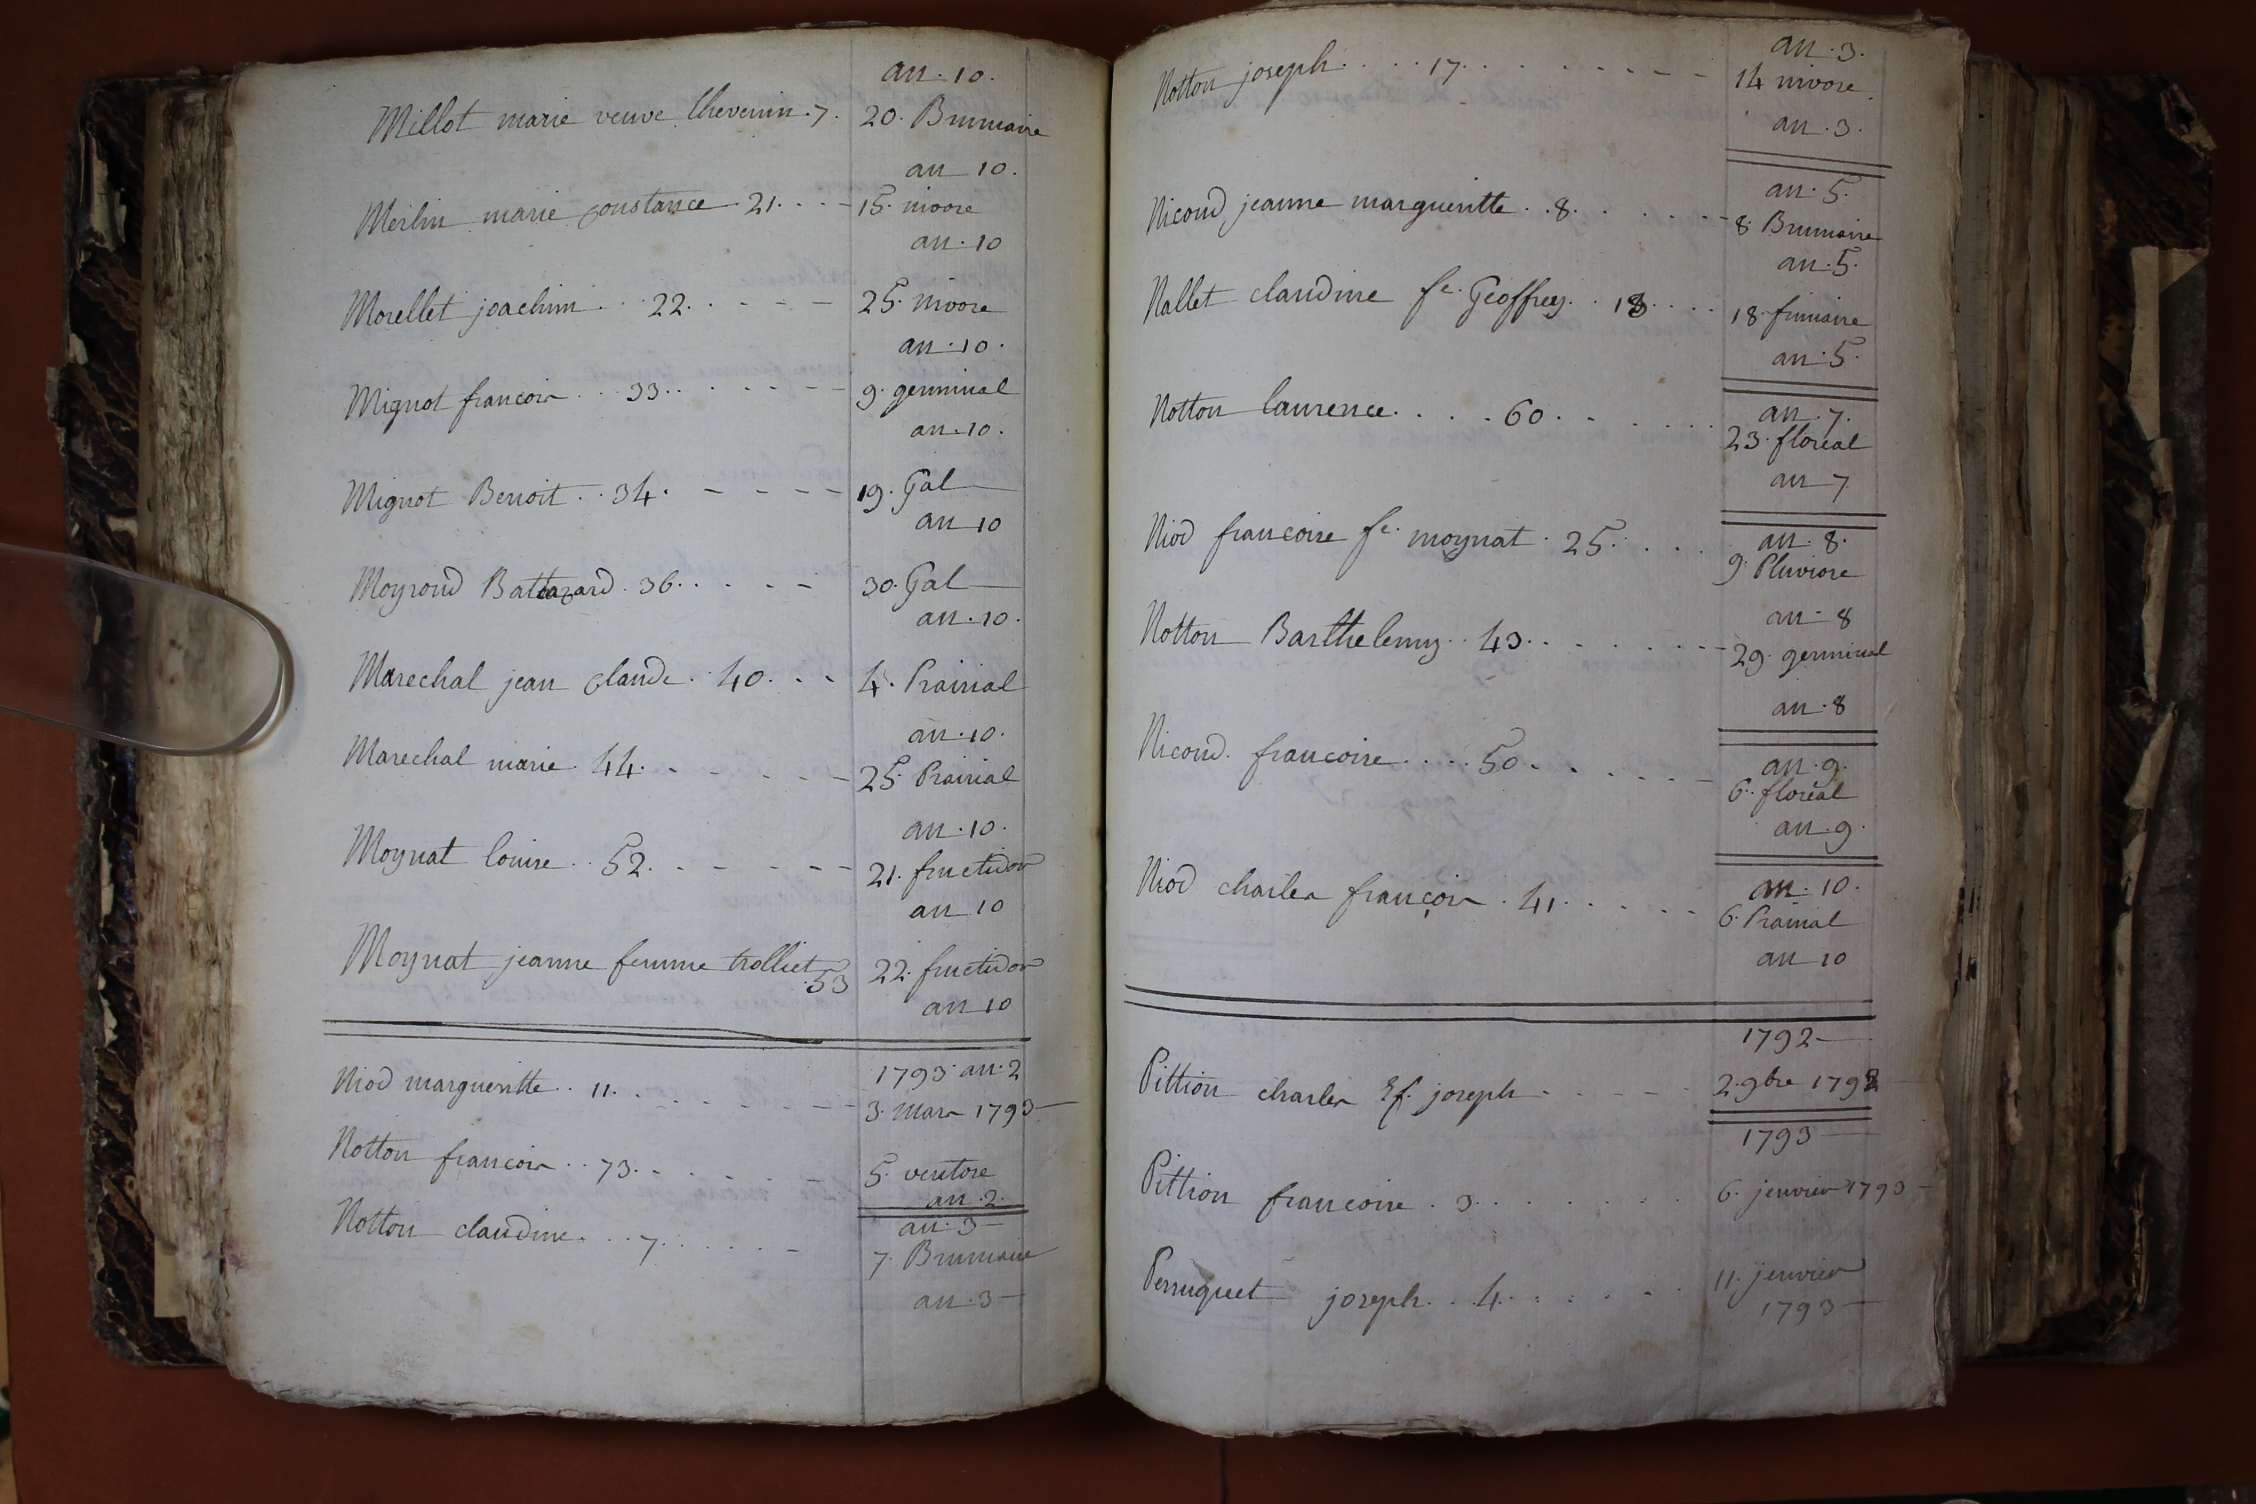 an . 10 .
Millot marie veuve thevenin . 7 . 20 . Brumaire
an 10 .
Merlin marie constance . 21 . . . . 15 . nivose
an . 10
Morellet joachim . . . 22 . . . . . 25 . nivose
an . 10 .
Mignot francois . . . 33 . . . . . . 9 . germinal
an . 10 .
Mignot Benoit . . 34 . . . . . 19 . Gal
an 10
Moyroud Baltazard . 36 . . . . . 30 . Gal
an . 10 .
Marechal jean claude . . 40 . . . 4 . Prairial
an . 10 .
Marechal marie . 44 . . . . . . 25 . Prairial
an . 10 .
Moynat louise . . 52 . . . . . . 21 . fructidor
an 10
Moynat jeanne femme trolliet 53 22 . fructidor
an 10
1793 an . 2
Niod margueritte . . 11 . . . . . . . 3 . Mars 1793
Notton francois . . 73 . . . . . . 5 . ventose
an . 2 .
an . 3
Notton claudine . . . 7 . . . . . 7 . Brumaire
an . 3
an . 3 .
Notton joseph . . . . 17 . . . . . . . . 14 nivose
an . 3 .
an . 5 .
Nicoud jeanne margueritte . . 8 . . . . . . 8 Brumaire
an . 5 .
Nallet claudine fe. Geoffrey . . 18 . . . . 18 . frimaire
an . 5 .
an . 7 .
Notton laurence . . . . 60 . . . . . . 23 . floréal
an 7
an . 8 .
Niod francoise fe. moynat . 25 . . . . 9 . Pluviose
an . 8
Notton Barthelemy . . 43 . . . . . . 29 . germinal
an . 8
an . 9 .
Nicoud . francoise . . . . 50 . . . . . . 6 . floréal
an . 9 .
an . 10 .
Niod charles françois . 41 . . . . . 6 . Prairial
an 10
1792
Pittion charles Ef. joseph . . . . . 2 . 9bre 1792
1793
Pittion francoise . 3 . . . . . . . 6 . jenvier 1793
Perruquet joseph . . 4 . . . . . . 11 . jenvier
1793